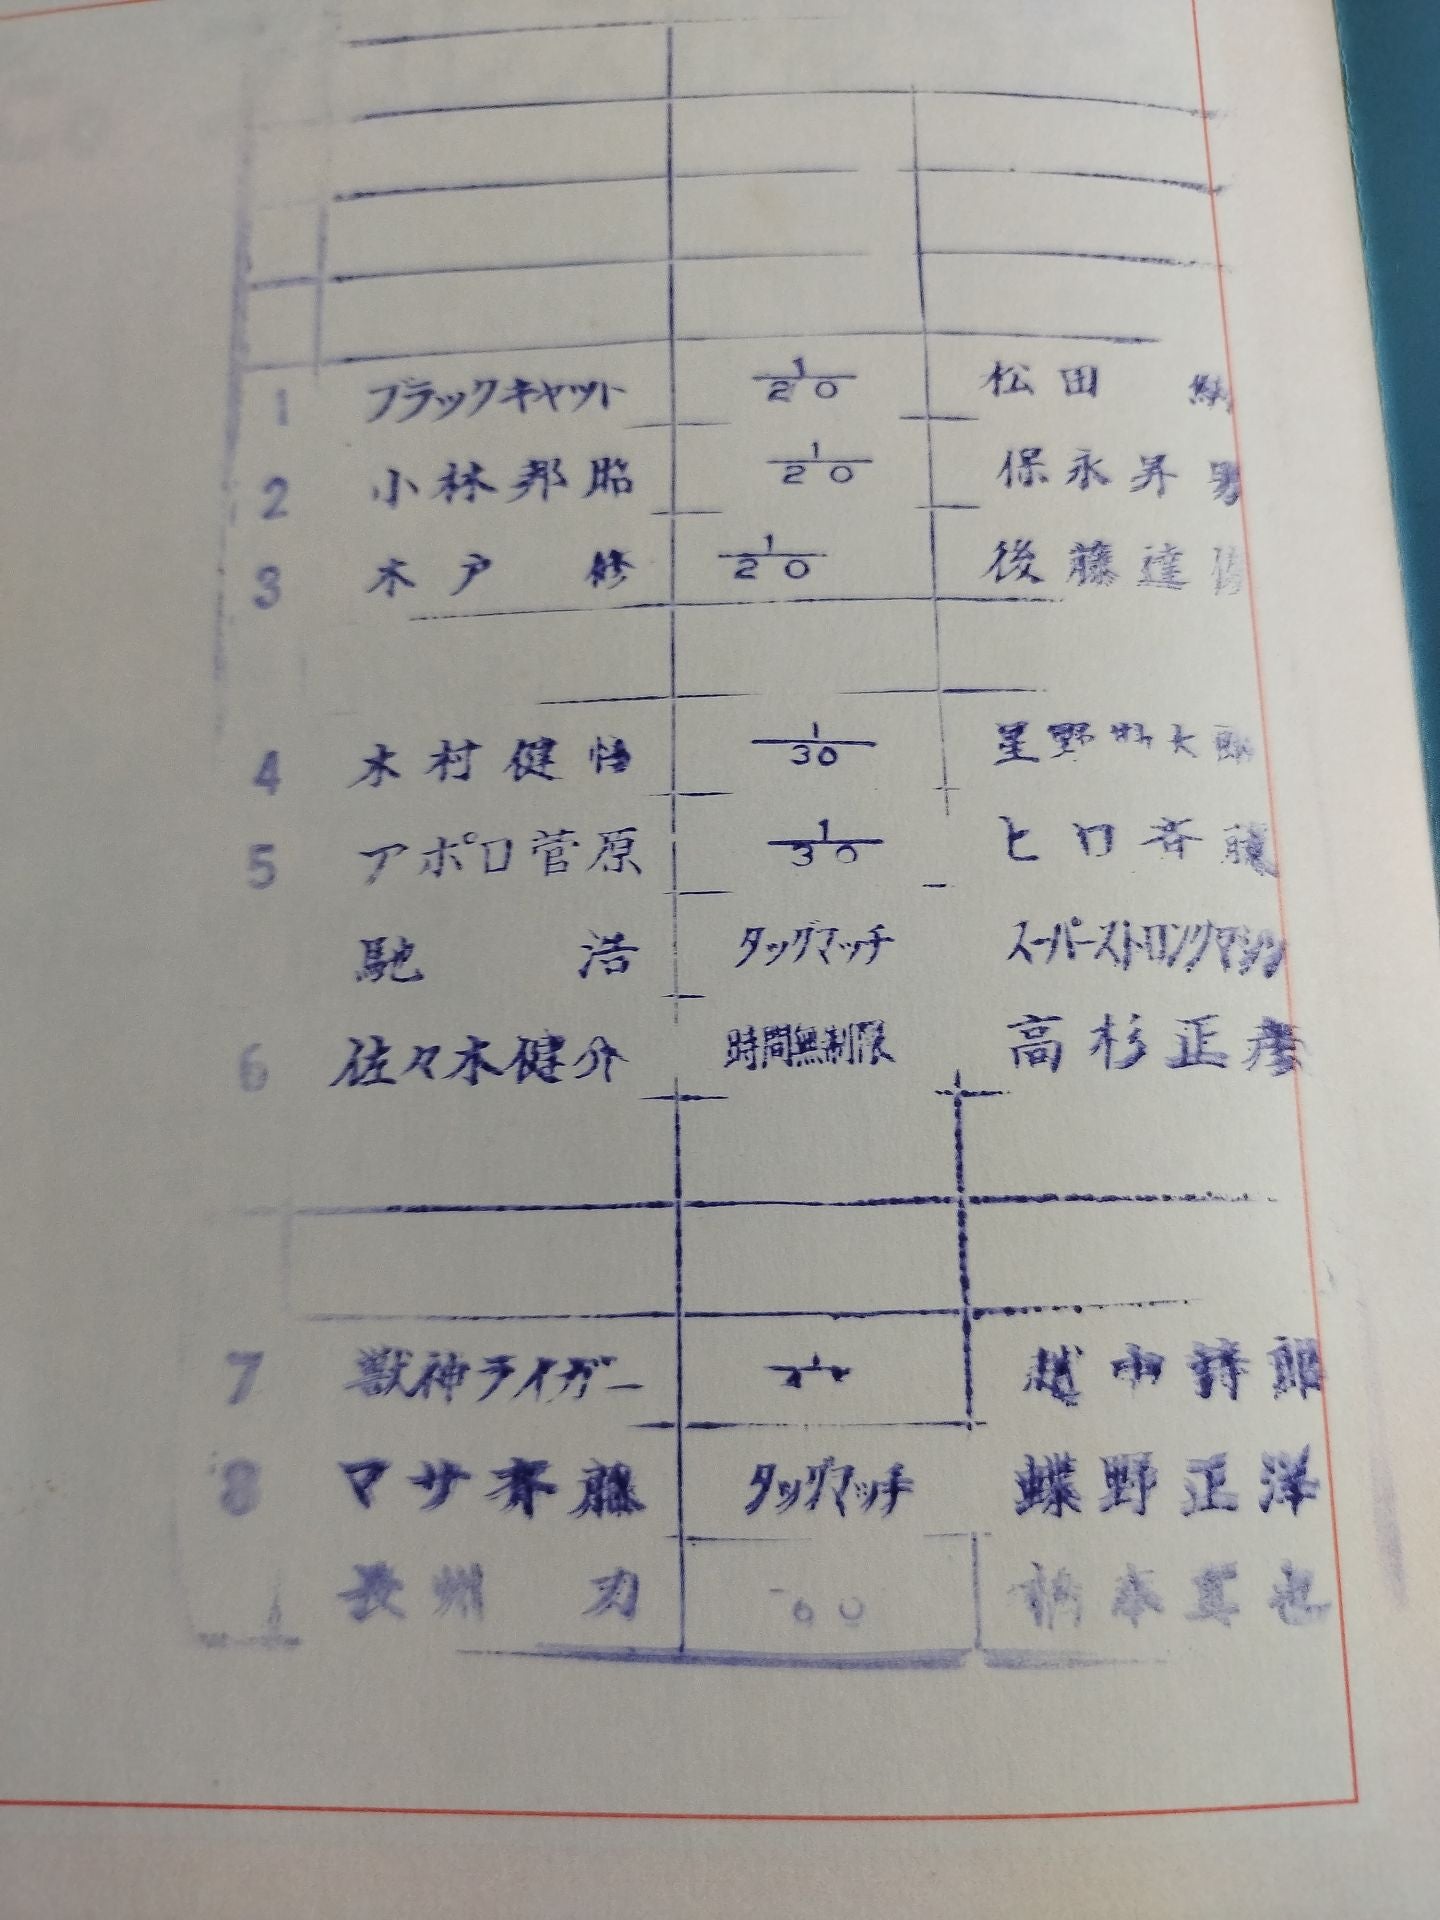 1 ブラックキャット 1/20 松田
2 小林邦昭 1/20 保永昇男
3 木戸 修 1/20 後藤達
4 木村健悟 1/30 星野勘太郎
5 アポロ菅原 1/30 ヒロ斉藤
馳 浩 タッグマッチ スーパーストロングマシン
6 佐々木健介 時間無制限 高杉正彦
7 獣神ライガー 越中詩郎
8 マサ斉藤 タッグマッチ 蝶野正洋
長州 力 60 橋本真也